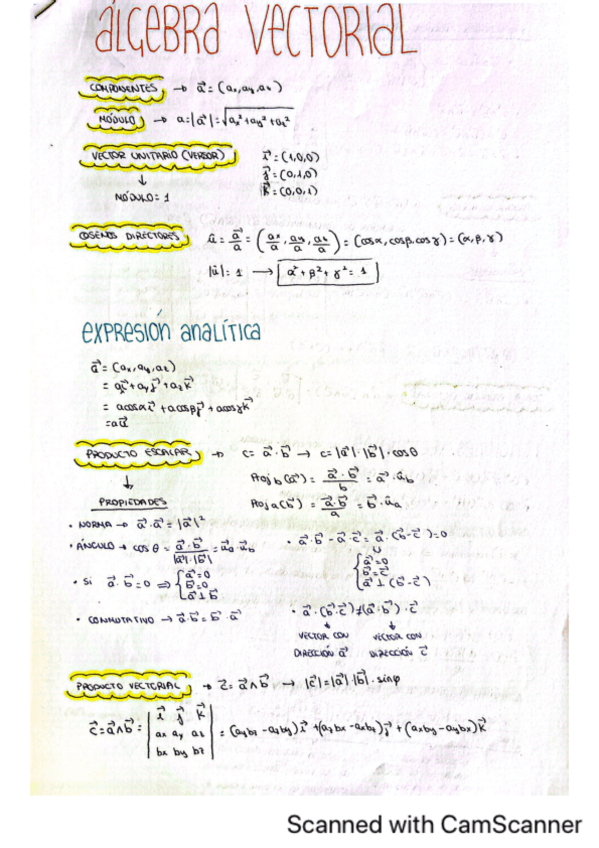 ÁLGEBRA VECTORIAL
COMPONENTES → a⃗ = (ax, ay, az)
MÓDULO → a = |a⃗| = √ax² + ay² + az²
VECTOR UNITARIO (VERSOR) i⃗ = (1,0,0)
↓ j⃗ = (0,1,0)
MÓDULO = 1 k⃗ = (0,0,1)
COSENOS DIRECTORES û = a⃗/a = (ax/a, ay/a, az/a) = (cosα, cosβ, cosγ) = (α, β, γ)
|û| = 1 → α² + β² + γ² = 1
EXPRESIÓN ANALÍTICA
a⃗ = (ax, ay, az)
= axi⃗ + ayj⃗ + azk⃗
= acosαi⃗ + acosβj⃗ + acosγk⃗
= aû
PRODUCTO ESCALAR → c = a⃗ · b⃗ → c = |a⃗| · |b⃗| · cosθ
↓ Proj b(a⃗) = a⃗ · b⃗ / b = a⃗ · ûb
PROPIEDADES Proj a(b⃗) = a⃗ · b⃗ / a = b⃗ · ûa
• NORMA → a⃗ · a⃗ = |a⃗|²
• ÁNGULO → cos θ = a⃗ · b⃗ / |a⃗| · |b⃗| = ûa · ûb
• a⃗ · b⃗ - a⃗ · c⃗ = a⃗ · (b⃗ - c⃗) = 0
a⃗ = 0
b⃗ = c⃗
a⃗ ⊥ (b⃗ - c⃗)
• Si a⃗ · b⃗ = 0 ⇒ { a⃗ = 0
b⃗ = 0
a⃗ ⊥ b⃗
• CONMUTATIVO → a⃗ · b⃗ = b⃗ · a⃗
• a⃗ · (b⃗ · c⃗) ≠ (a⃗ · b⃗) · c⃗
VECTOR CON DIRECCIÓN a⃗
VECTOR CON DIRECCIÓN c⃗
PRODUCTO VECTORIAL → c⃗ = a⃗ ∧ b⃗ → |c⃗| = |a⃗| · |b⃗| · sinφ
i⃗ j⃗ k⃗
c⃗ = a⃗ ∧ b⃗ = | ax ay az | = (aybz - azby)i⃗ + (azbx - axbz)j⃗ + (axby - aybx)k⃗
bx by bz
Scanned with CamScanner